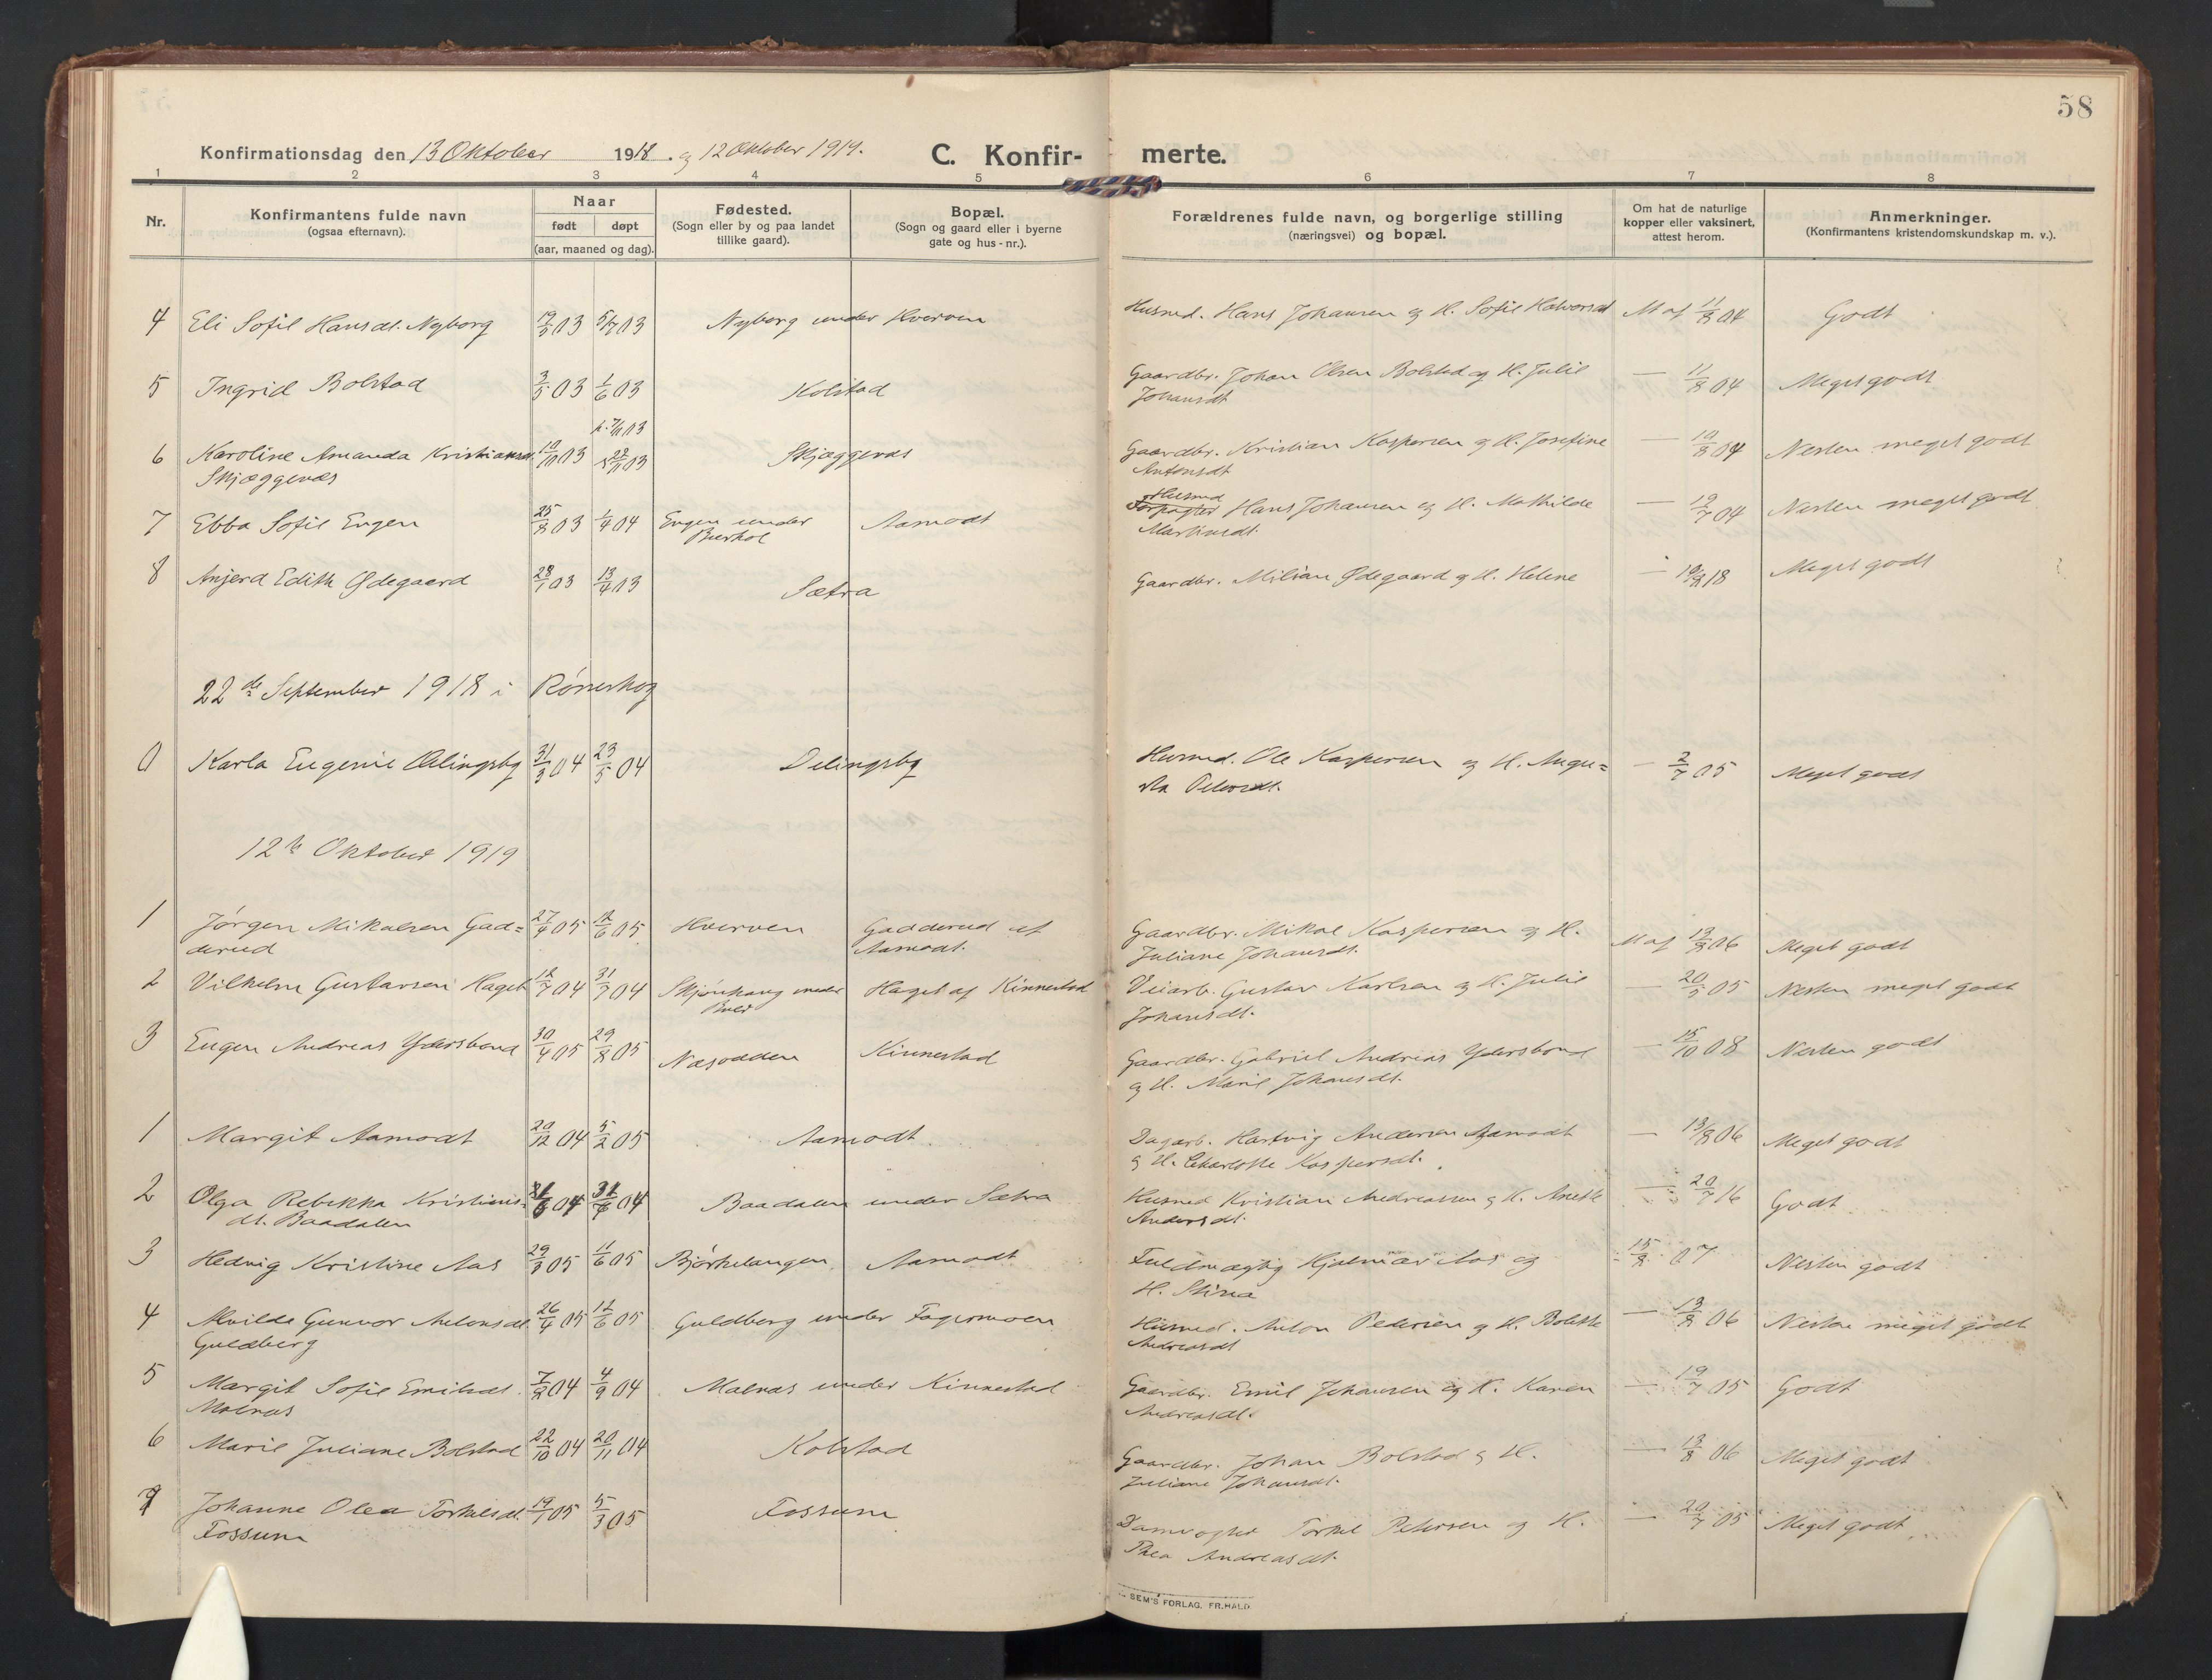 58
Konfirmationsdag den 13 Oktober 1918. og 12 Oktober 1919. C. Konfir- merte.
1 2 3 4 5 6 7 8
Nr.
Konfirmantens fulde navn
(ogsaa efternavn).
Naar
født døpt
(aar, maaned og dag).
Fødested.
(Sogn eller by og paa landet
tillike gaard).
Bopæl.
(Sogn og gaard eller i byerne
gate og hus - nr.).
Forældrenes fulde navn, og borgerlige stilling
(næringsvei) og bopæl.
Om hat de naturlige
kopper eller vaksinert,
attest herom.
Anmerkninger.
(Konfirmantens kristendomskundskap m. v.).
4 Eli Sofie Hansdt. Nyborg 03 5/7 03 Nyborg under Hverven Husmd. Hans Johansen og H. Sofie Halvorsdt M af 11/8 04 Godt
5 Ingrid Bolstad 3/5 03 1/6 03 Kolstad Gaardbr. Johan Olsen Bolstad og H. Julie — 11/8 04 Meget godt
Johansdt
03
6 Karoline Amanda Kristiansdt. 10/10 03 22/11 03 Skjæggenæs Gaardbr. Kristian Kaspersen og H. Josefine — 10/8 04 Nesten meget godt
Skjæggenæs Antonsdt
Husmd
7 Ebba Sofie Engen 25/8 03 1/4 04 Engen under Aamodt Forpagter Hans Johansen og H. Mathilde — 19/7 04 Nesten meget godt
Martinsdt.
8 Anjerd Edith Ødegaard 28/1 03 13/4 03 Sætra Gaardbr. Milian Ødegaard og H. Helene — 18 Meget godt
22de September 1918 i Rømskog
0 Karla Eugenie Delingsby 31/3 04 23/5 04 Delingsby Husmd. Ole Kaspersen og H. Augu= — 2/7 05 Meget godt
sta Petersdt.
12te Oktober 1919
1 Jørgen Mikalsen Gad= 27/4 05 12/6 05 Hverven Gadderud af Gaardbr. Mikal Kaspersen og H. M af 13/8 06 Meget godt
derud Aamodt. Juliane Johansdt.
2 Vilhelm Gustavsen Haget 18/7 04 31/7 04 Skjønhaug under Haget af Kinnestad Veiarb. Gustav Karlsen og H. Julie — 20/5 05 Nesten meget godt
Johansdt.
3 Eugen Andreas Ydersbond 30/4 05 29/8 05 Næsodden Kinnestad Gaardbr. Gabriel Andreas Ydersbond — 15/10 08 Nesten godt
og H. Marie Johansdt.
1 Margit Aamodt 20/12 04 5/2 05 Aamodt Dagarb. Hartvig Andersen Aamodt — 13/8 06 Meget godt
og H. Charlotte Kaspersdt.
2 Olga Rebekka Kristians= 04 04 Baadalen under Sætra Husmd Kristian Andreassen og H. Anette — 20/7 16 Godt
dt. Baadalen Andersdt.
3 Hedvig Kristine Aas 29/3 05 11/6 05 Bjørkelangen Aamodt Fuldmægtig Hjalmar Aas og 15/8 07 Nesten godt
H. Stina
4 Alvilde Gunvor Antonsdt. 26/4 05 12/6 05 Guldberg under Fagermoen Husmd. Anton Pedersen og H. Bolette — 13/8 06 Nesten meget godt
Guldberg Andreasdt
5 Margit Sofie Emilsdt. 7/8 04 4/9 04 Molnæs under Kinnestad Gaardbr. Emil Johansen og H. Karen — 19/7 05 Godt
Molnæs Andreasdt.
6 Marie Juliane Bolstad 22/10 04 20/11 04 Kolstad Gaardbr. Johan Bolstad og H. — 13/8 06 Meget godt
Juliane Johansdt.
7 Johanne Olea Torkelsdt. 19/1 05 5/3 05 Fossum Damvogter Torkel Petersen og H. — 20/7 05 Meget godt
Fossum Thea Andreasdt.
SEM'S FORLAG, FR.HALD